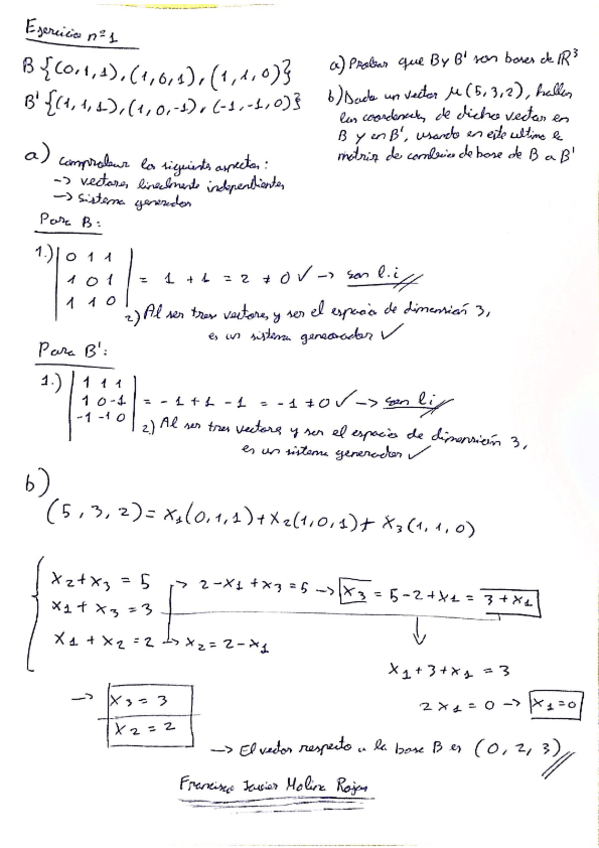 Ejercicio nº 1
B {(0,1,1), (1,0,1), (1,1,0)}
B' {(1,1,1), (1,0,-1), (-1,-1,0)}
a) Probar que B y B' son bases de IR³
b) Dado un vector μ (5,3,2), hallar
las coordenadas de dicho vector en
B y en B', usando en este ultimo la
matriz de cambio de base de B a B'
a) Comprobar los siguientes aspectos:
-> vectores linealmente independientes
-> Sistema generador
Para B:
1.) | 0 1 1 |
| 1 0 1 | = 1 + 1 = 2 ≠ 0 ✓ -> son l.i
| 1 1 0 |
2) Al ser tres vectores, y ser el espacio de dimensión 3,
es un sistema generador ✓
Para B':
1.) | 1 1 1 |
| 1 0 -1 | = -1 + 1 - 1 = -1 ≠ 0 ✓ -> son li
| -1 -1 0 |
2) Al ser tres vectores y ser el espacio de dimensión 3,
es un sistema generador ✓
b)
(5, 3, 2) = x1(0,1,1) + x2(1,0,1) + x3(1,1,0)
x2 + x3 = 5 -> 2 - x1 + x3 = 5 -> x3 = 5 - 2 + x1 = 3 + x1
x1 + x3 = 3
x1 + x2 = 2 -> x2 = 2 - x1
x1 + 3 + x1 = 3
2x1 = 0 -> x1 = 0
-> x3 = 3
x2 = 2
-> El vector respecto a la base B es (0, 2, 3)
Francisco Javier Molina Rojas